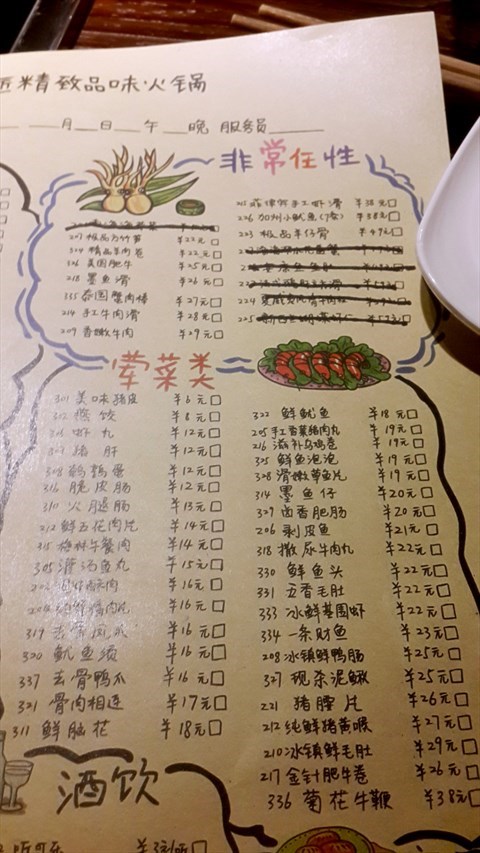 精致品味火锅
月 日 午 晚 服务员
非常任性
207 极品方竹笋 ¥22元
精品羊肉卷 ¥22元
326 美国肥牛 ¥25元
218 墨鱼滑 ¥26元
335 泰国蟹肉棒 ¥27元
214 手工牛肉滑 ¥28元
209 香嫩牛肉 ¥29元
菲律宾手工虾滑 ¥38元
226 加州小鱿鱼 ¥38元
223 极品羊仔骨 ¥49元
224
225
荤菜类
301 美味猪皮 ¥6元
312 蛋饺 ¥8元
虾丸 ¥12元
307 猪肝 ¥12元
308 鹌鹑蛋 ¥12元
316 脆皮肠 ¥12元
310 火腿肠 ¥13元
212 鲜五花肉片 ¥14元
315 梅林午餐肉 ¥14元
305 灌汤鱼丸 ¥15元
¥16元
¥16元
319 ¥16元
320 鱿鱼须 ¥16元
337 去骨鸭爪 ¥16元
321 骨肉相连 ¥17元
311 鲜脑花 ¥18元
322 鲜鱿鱼 ¥18元
205 手工香菜猪肉丸 ¥19元
216 滋补乌鸡卷 ¥19元
325 鲜鱼泡泡 ¥19元
328 滑嫩草鱼片 ¥19元
314 墨鱼仔 ¥20元
329 卤香肥肠 ¥20元
206 剥皮鱼 ¥21元
318 撒尿牛肉丸 ¥22元
330 鲜鱼头 ¥22元
331 五香毛肚 ¥22元
333 冰鲜基围虾 ¥22元
334 一条财鱼 ¥23元
208 冰镇鲜鸭肠 ¥25元
327 现杀泥鳅 ¥25元
221 猪腰片 ¥26元
212 纯鲜猪黄喉 ¥27元
210 冰镇鲜毛肚 ¥29元
217 金针肥牛卷 ¥26元
336 菊花牛鞭 ¥38元
酒饮